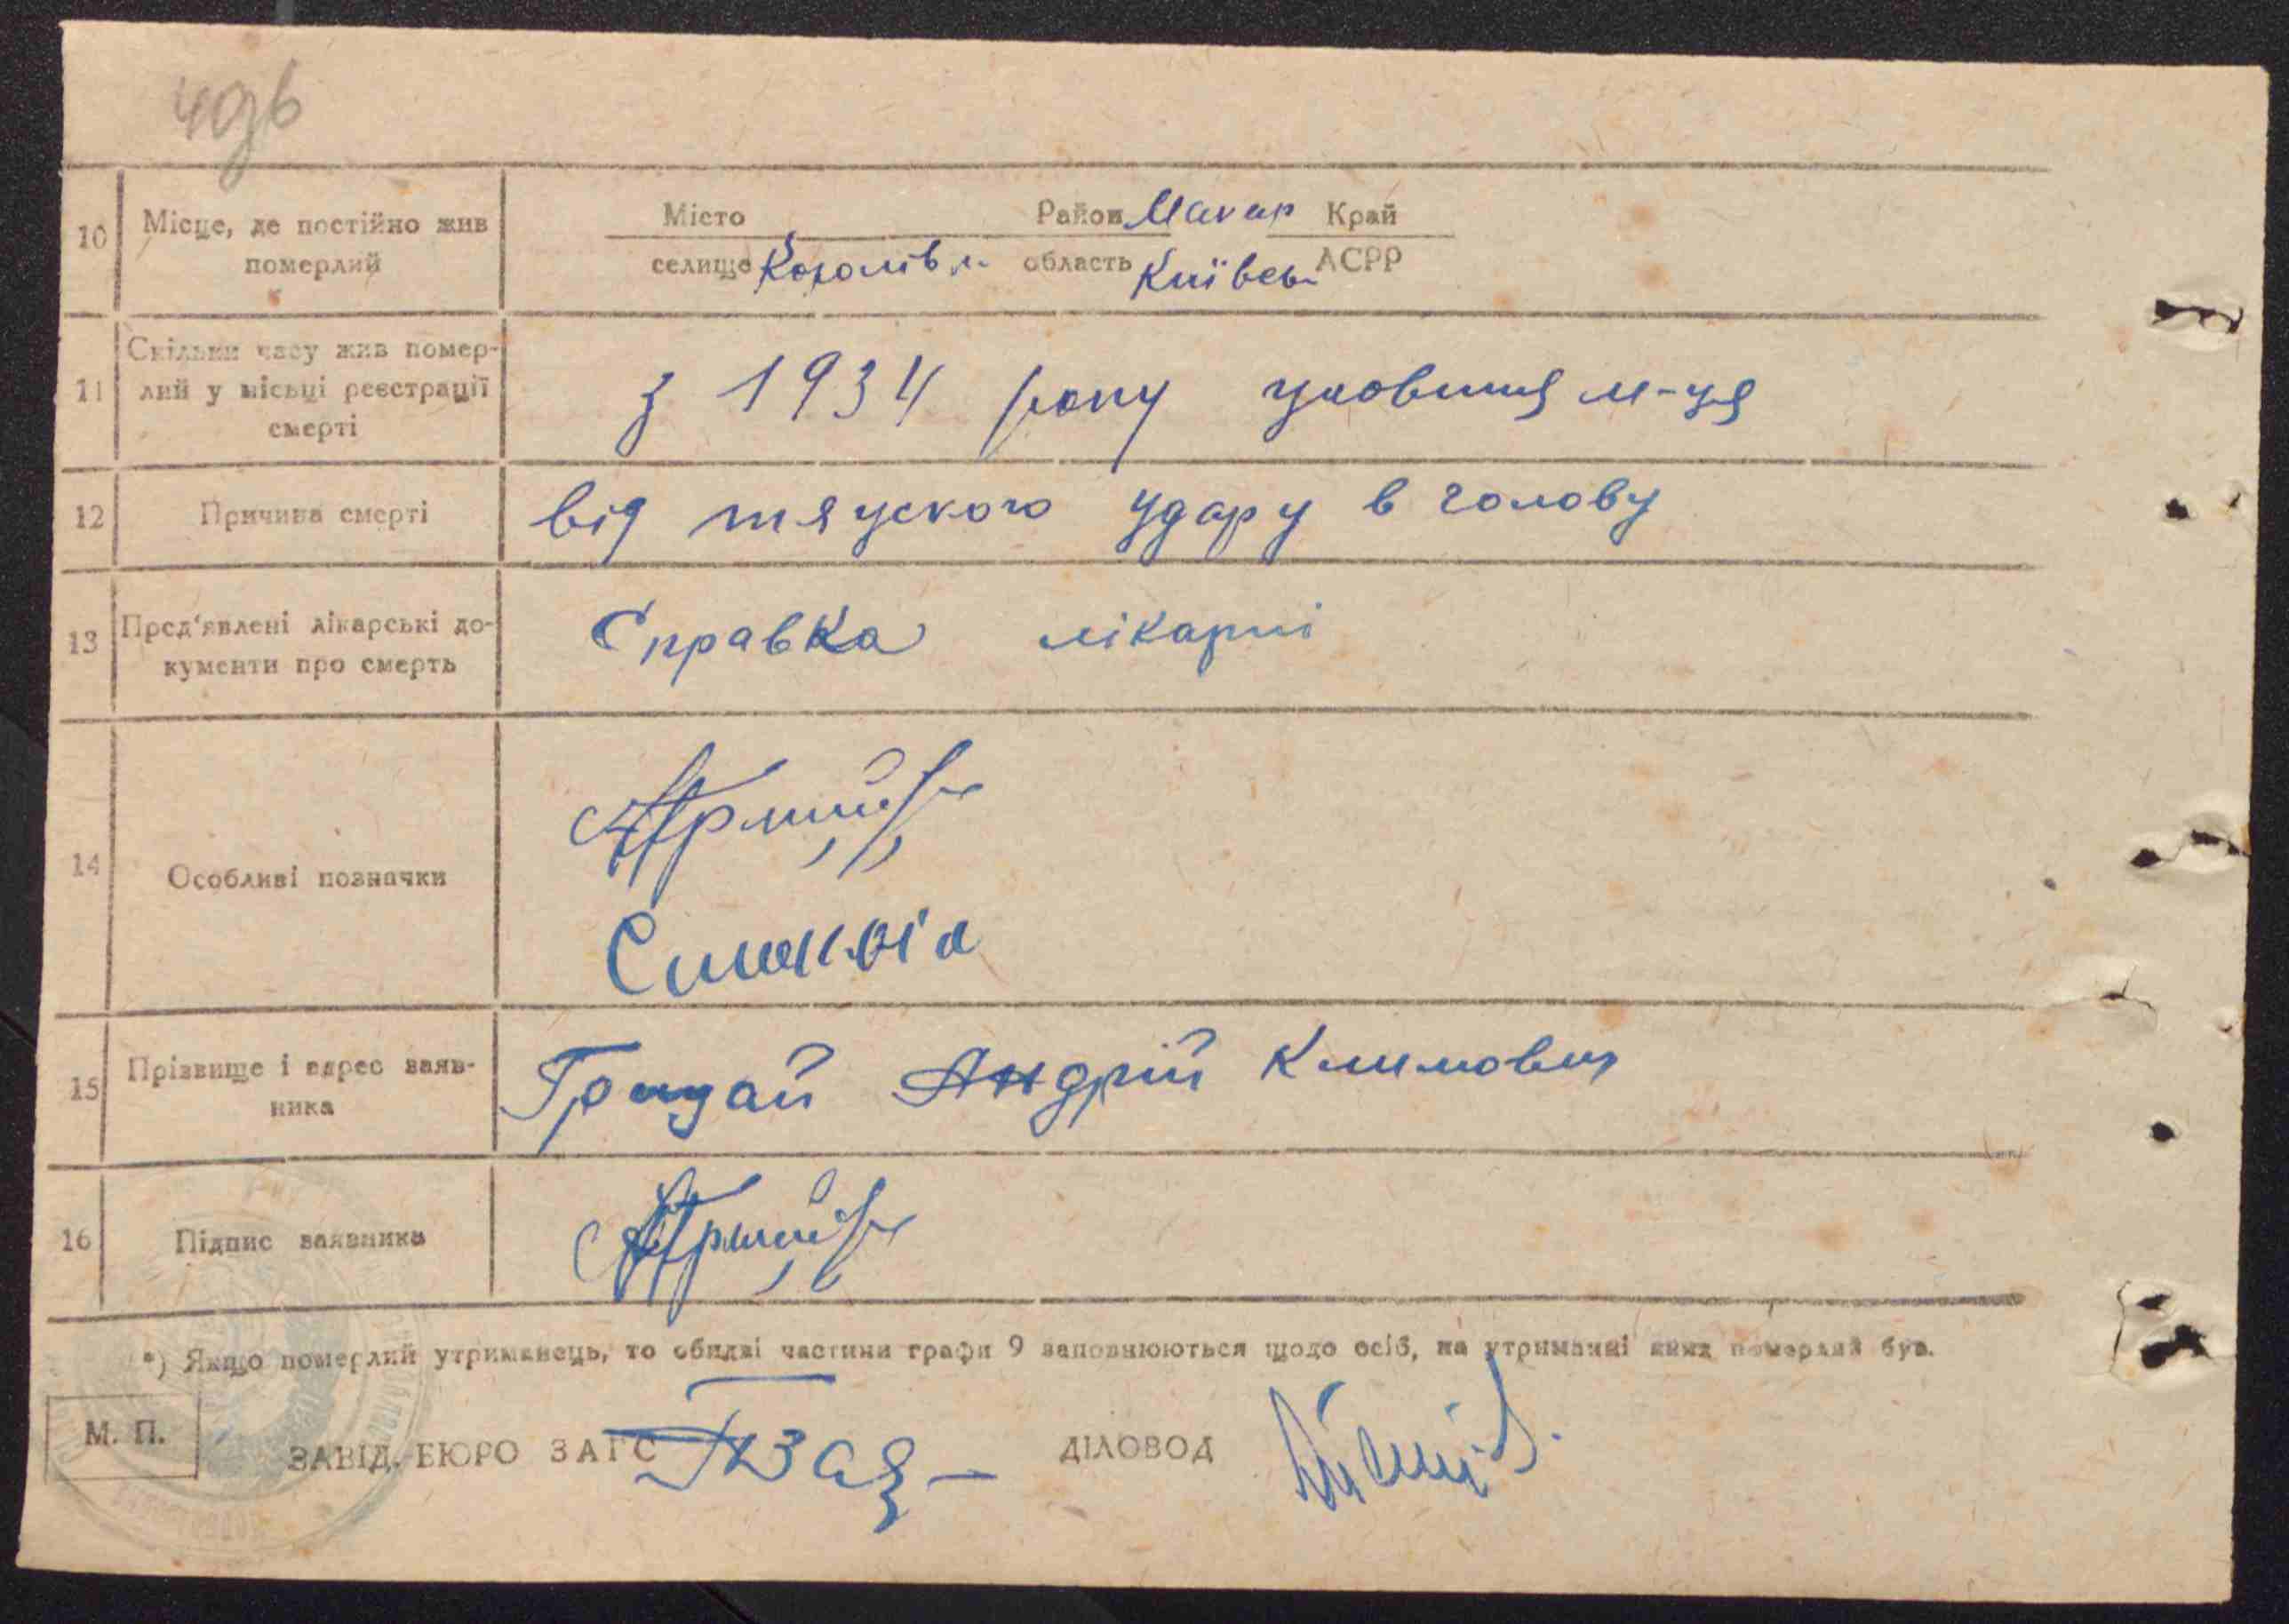 10 Місце, де постійно жив померлий
Місто Район Макар Край
селище Королівк область Київськ АСРР
11 Скільки часу жив помер-
лий у місьці реєстрації
смерті
з 1934 року м-ця
12 Причина смерті
від тяуского удару в голову
13 Пред'явлені лікарські до-
кументи про смерть
Справка лікарні
14 Особливі позначки
15 Прізвище і адрес заяв-
ника
Андрій Климович
16 Підпис заявника
*) Якщо померлий утриманець, то обидві частини графи 9 заповнюються щодо осіб, на утриманні яких померлий був.
М. П.
ЗАВІД. БЮРО ЗАГС ДІЛОВОД